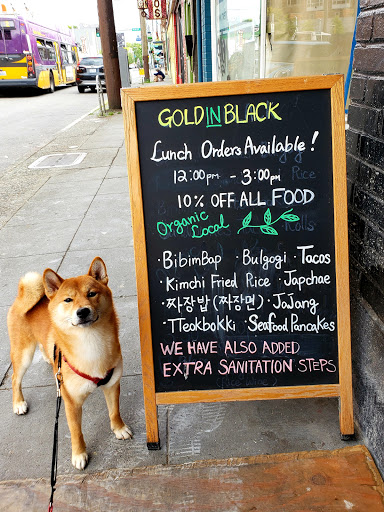 GOLD IN BLACK
Lunch Orders Available!
12:00pm - 3:00pm
10% OFF ALL FOOD
Organic
Local
·BibimBap ·Bulgogi ·Tacos
·Kimchi Fried Rice ·Japchae
·짜장밥(짜장면)·JaJang
·TTeokbokki ·Seafood Pancakes
WE HAVE ALSO ADDED
EXTRA SANITATION STEPS